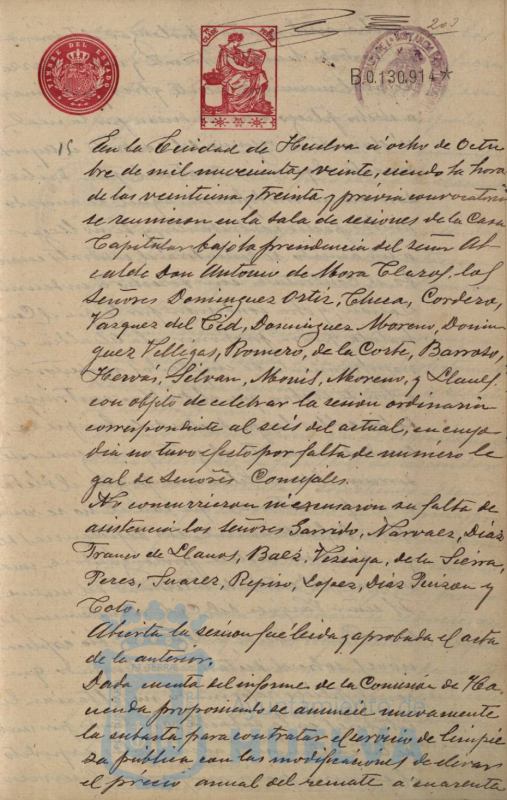 203
TIMBRE DEL ESTADO
B.0.130.914*
15 En la Ciudad de Huelva á ocho de Octu
bre de mil novecientos veinte, siendo la hora
de las veintiuna y treinta y prévia convocatoria
se reunieron en la sala de sesiones de la Casa
Capitular bajo la presidencia del señor Al
calde Don Antonio de Mora Claros, los
Señores Dominguez Ortiz, Checa, Cordero,
Vazquez del Cid, Dominguez Moreno, Domin
guez Villegas, Romero, de la Corte, Barroso,
Hervás, Selvan, Monís, Moreno, y Llanes
con objeto de celebrar la sesion ordinaria
correspondiente al seis del actual, en cuyo
dia no tuvo efecto por falta de número le
gal de Señores Concejales.
No concurrieron ni excusaron su falta de
asistencia los señores Garrido, Narvaez, Diaz
Franco de Llanos, Baez, Vizcaya, de la Sierra,
Perez, Suarez, Repiso, Lopez, Diaz Pinzon y
Toto.
Abierta la sesion fué leida y aprobada el acta
de la anterior.
Dada cuenta del informe de la Comision de Ha
cienda proponiendo se anuncie nuevamente
la subasta para contratar el servicio de limpie
za pública con las modificaciones de elevar
el precio anual del remate á cuarenta
HUELVA